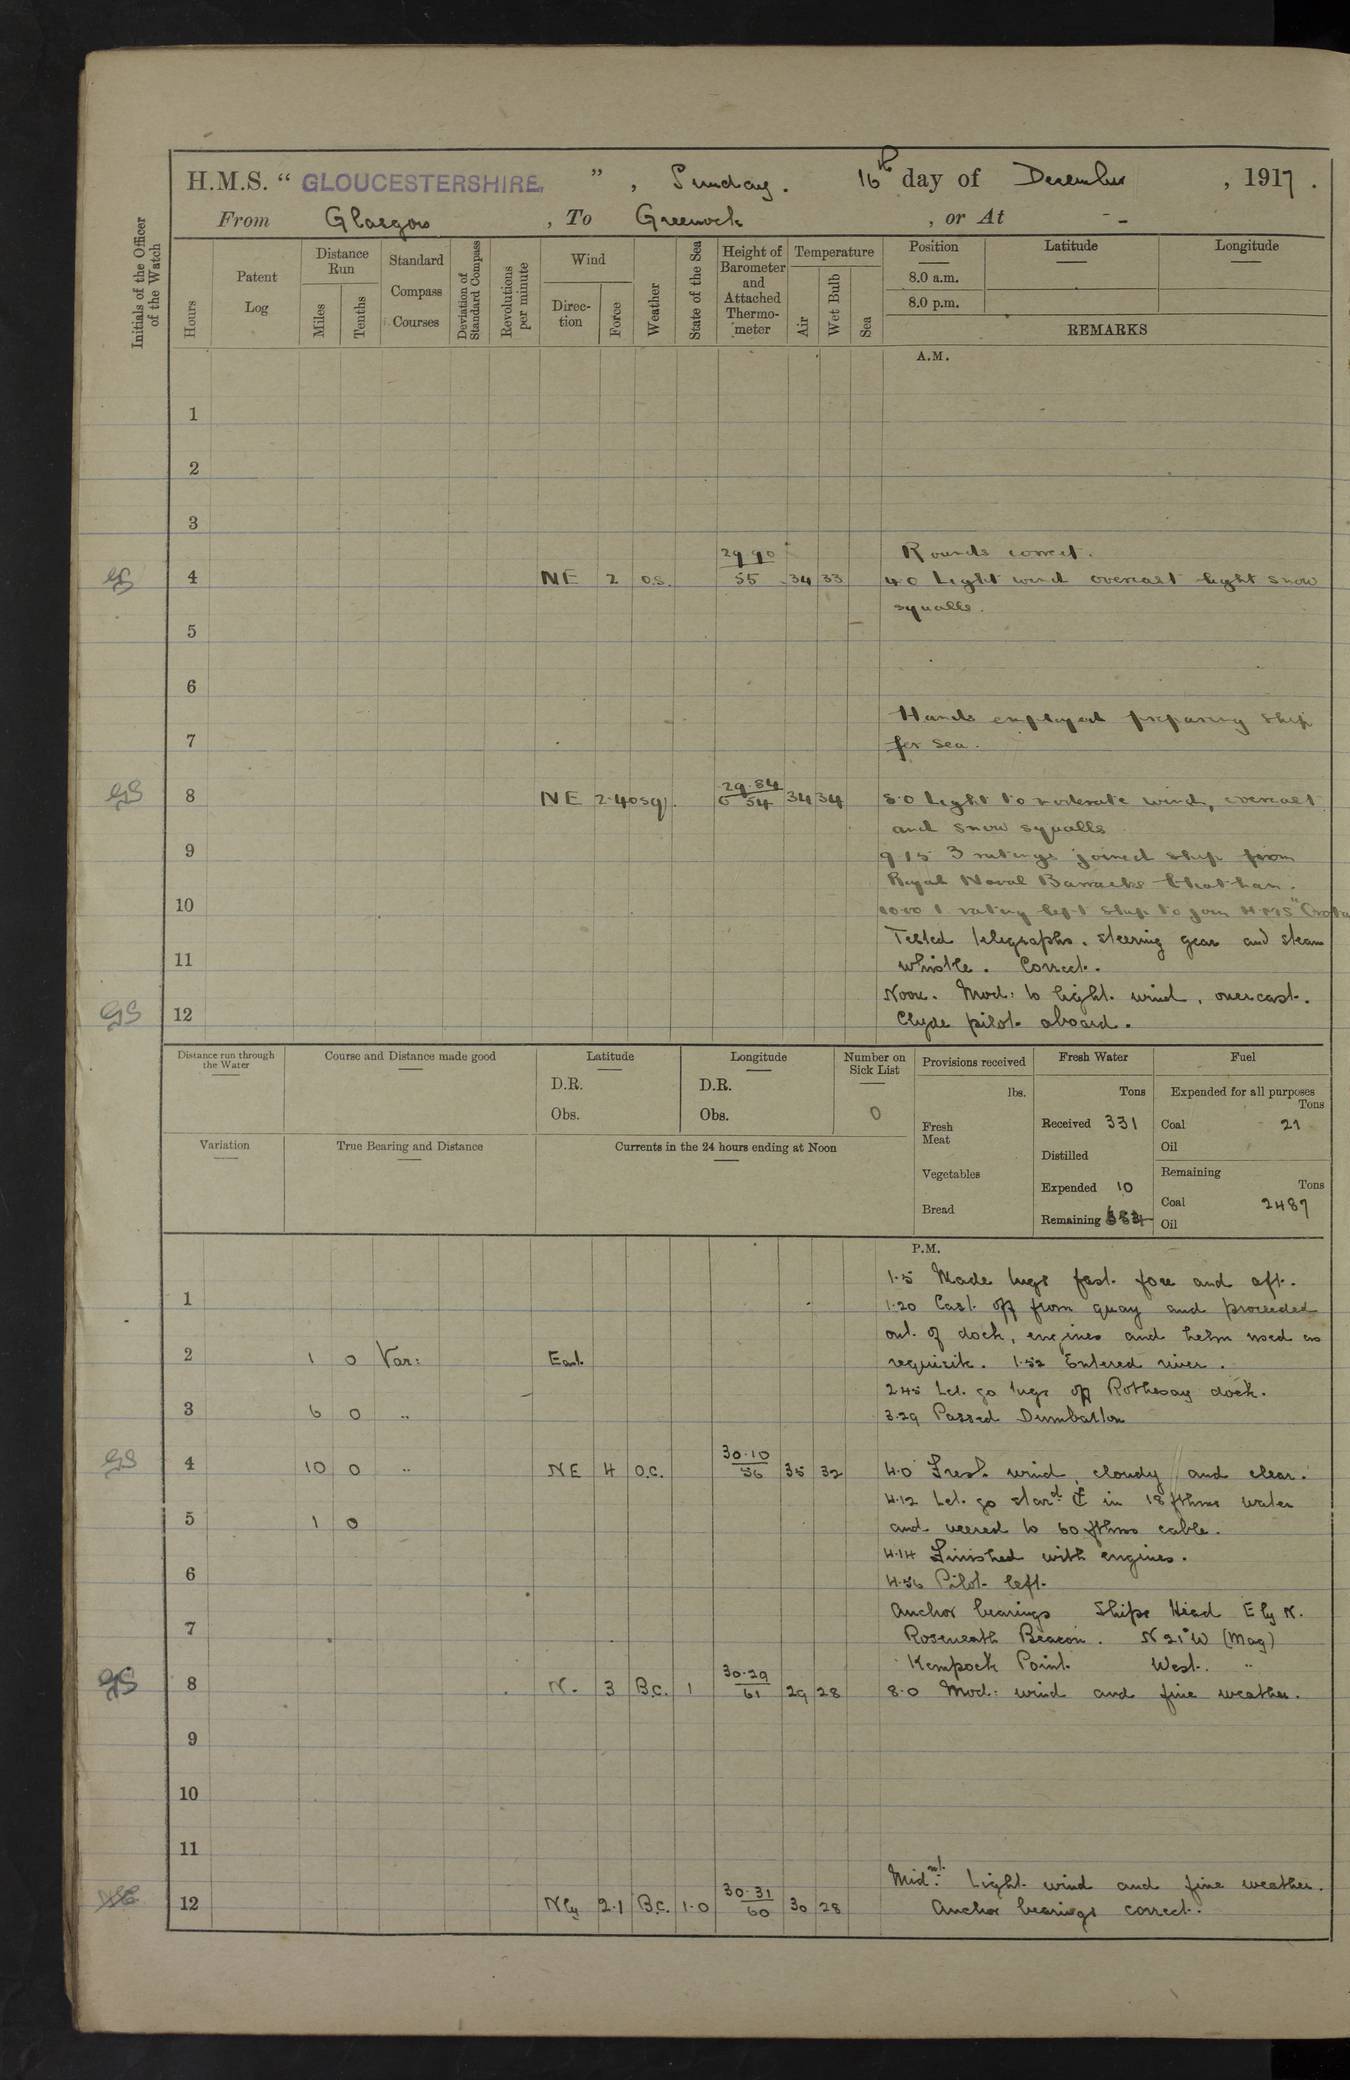 H.M.S. “ GLOUCESTERSHIRE, ” , Sunday. 16th day of December , 1917 .
From Glasgow , To Greenock , or At - -
Initials of the Officer of the Watch
Hours
Patent Log
Distance Run
Miles
Tenths
Standard Compass Courses
Deviation of Standard Compass
Revolutions per minute
Wind
Direction
Force
Weather
State of the Sea
Height of Barometer and Attached Thermometer
Temperature
Air
Wet Bulb
Sea
Position Latitude Longitude
8.0 a.m.
8.0 p.m.
REMARKS
A.M.
1
2
3
Rounds correct.
GS 4 NE 2 o.s. 29.90 / 55 34 33 4.0 Light wind overcast light snow
squalls.
5
6
Hands employed preparing ship
7 for sea.
GS 8 NE 2.4 o sq. 29.84 / 54 34 34 8.0 Light to moderate wind, overcast
and snow squalls
9 9.15 3 ratings joined ship from
Royal Naval Barracks Chatham.
10 10.00 1 rating left ship to join HMS
Tested telegraphs, steering gear and steam
11 whistle. Correct.
Noon. Mod: to light wind, overcast.
GS 12 Clyde pilot aboard.
Distance run through the Water
Course and Distance made good
Latitude
D.R.
Obs.
Longitude
D.R.
Obs.
Number on Sick List
0
Variation
True Bearing and Distance
Currents in the 24 hours ending at Noon
Provisions received
lbs.
Fresh Meat
Vegetables
Bread
Fresh Water
Tons
Received 331
Distilled
Expended 10
Remaining
Fuel
Expended for all purposes
Tons
Coal 21
Oil
Remaining
Tons
Coal 2487
Oil
P.M.
1.5 Made tugs fast fore and aft.
1 1.20 Cast off from quay and proceeded
out of dock, engines and helm used as
2 1 0 Var: East. requisite. 1.52 Entered river.
2.45 Let go tugs off Rothesay dock.
3 6 0 " 3.29 Passed Dumbarton
GS 4 10 0 " NE 4 O.C. 30.10 / 56 35 32 4.0 Fresh wind, cloudy and clear.
4.12 Let go starbd ⚓ in 18 fthms water
5 1 0 and veered to 60 fthms cable.
4.14 Finished with engines.
6 4.56 Pilot left.
Anchor bearings Ships Head E by N.
7 Roseneath Beacon. N 21° W (Mag)
Kempock Point West. "
GS 8 N. 3 B.C. 1 30.29 / 61 29 28 8.0 Mod: wind and fine weather.
9
10
11
Midnt. Light wind and fine weather.
12 Nly 2.1 B.C. 1.0 30.31 / 60 30 28 Anchor bearings correct.